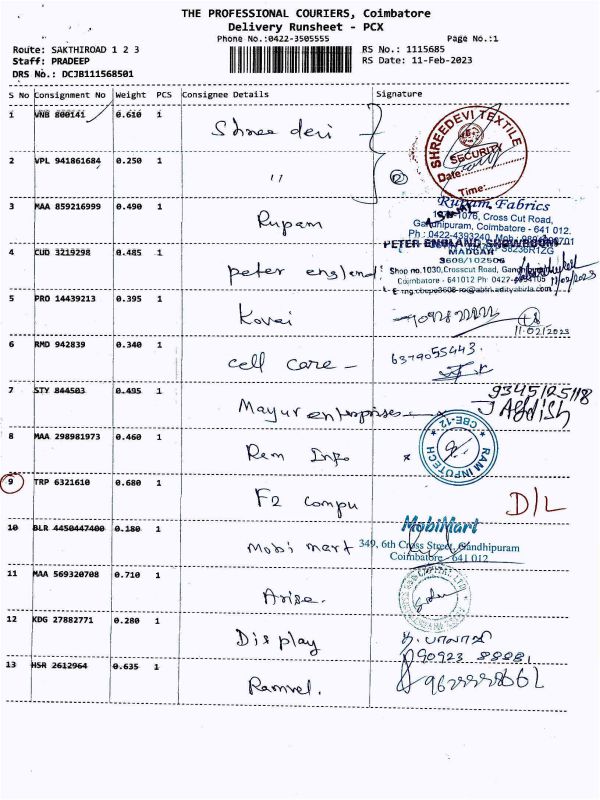 THE PROFESSIONAL COURIERS, Coimbatore
Delivery Runsheet - PCX
Phone No.:0422-3505555 Page No.:1
Route: SAKTHIROAD 1 2 3 RS No.: 1115685
Staff: PRADEEP RS Date: 11-Feb-2023
DRS No.: DCJB111568501
S No Consignment No Weight PCS Consignee Details Signature
1 VNB 800141 0.610 1 Shree devi
SHREEDEVI TEXTILE
SECURITY
Date:
Time:
2 VPL 941861684 0.250 1 "
3 MAA 859216999 0.490 1 Rupam
Rupam Fabrics
Cross Cut Road,
Gandhipuram, Coimbatore - 641 012.
Ph : 0422-4393240
4 CUD 3219298 0.485 1 peter england
PETER ENGLAND SHOWROOM
MADGAR
3608/102506
Shop no.1030,Crosscut Road,
Coimbatore - 641012
11/02/2023
5 PRO 14439213 0.395 1 Kovai
11.02/2023
6 RMD 942839 0.340 1 cell care -
6379055443.
7 STY 844503 0.495 1 Mayur enterprises
8 MAA 298981973 0.460 1 Ram Info
RAM INFOTECH
CBE-12
9 TRP 6321610 0.680 1 F2 compu D/L
10 BLR 4450447400 0.180 1 Mobi mart
MobiMart
349, 6th Cross Street, Gandhipuram
Coimbatore - 641 012
11 MAA 569320708 0.710 1 Arise.
12 KDG 27882771 0.280 1 Display
90923 88881
13 HSR 2612964 0.635 1 Ramvel.